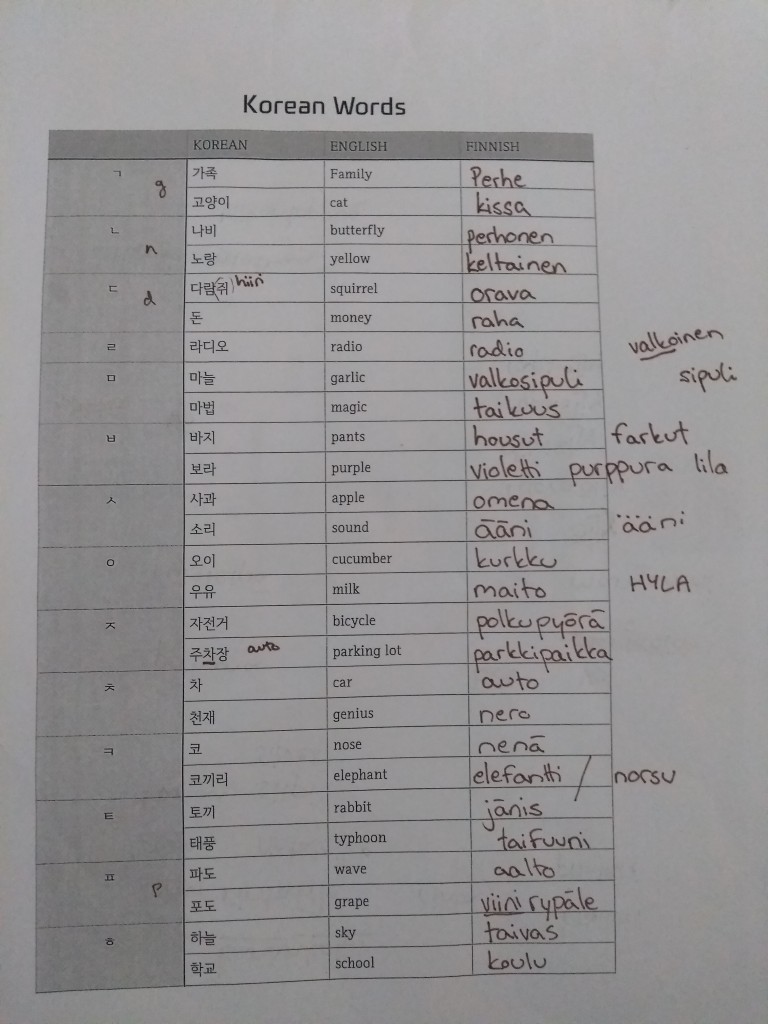 Korean Words
KOREAN ENGLISH FINNISH
ㄱ g 가족 Family Perhe
고양이 cat kissa
ㄴ n 나비 butterfly perhonen
노랑 yellow keltainen
ㄷ d 다람(쥐) hiiri squirrel orava
돈 money raha
ㄹ 라디오 radio radio valkoinen
ㅁ 마늘 garlic valkosipuli sipuli
마법 magic taikuus
ㅂ 바지 pants housut farkut
보라 purple violetti purppura lila
ㅅ 사과 apple omena
소리 sound āāni ääni
ㅇ 오이 cucumber kurkku
우유 milk maito HYLA
ㅈ 자전거 bicycle polkupyōrā
주차장 auto parking lot parkkipaikka
ㅊ 차 car auto
천재 genius nero
ㅋ 코 nose nenā
코끼리 elephant elefantti / norsu
ㅌ 토끼 rabbit jānis
태풍 typhoon taifuuni
ㅍ p 파도 wave aalto
포도 grape viinirypāle
ㅎ 하늘 sky taivas
학교 school koulu